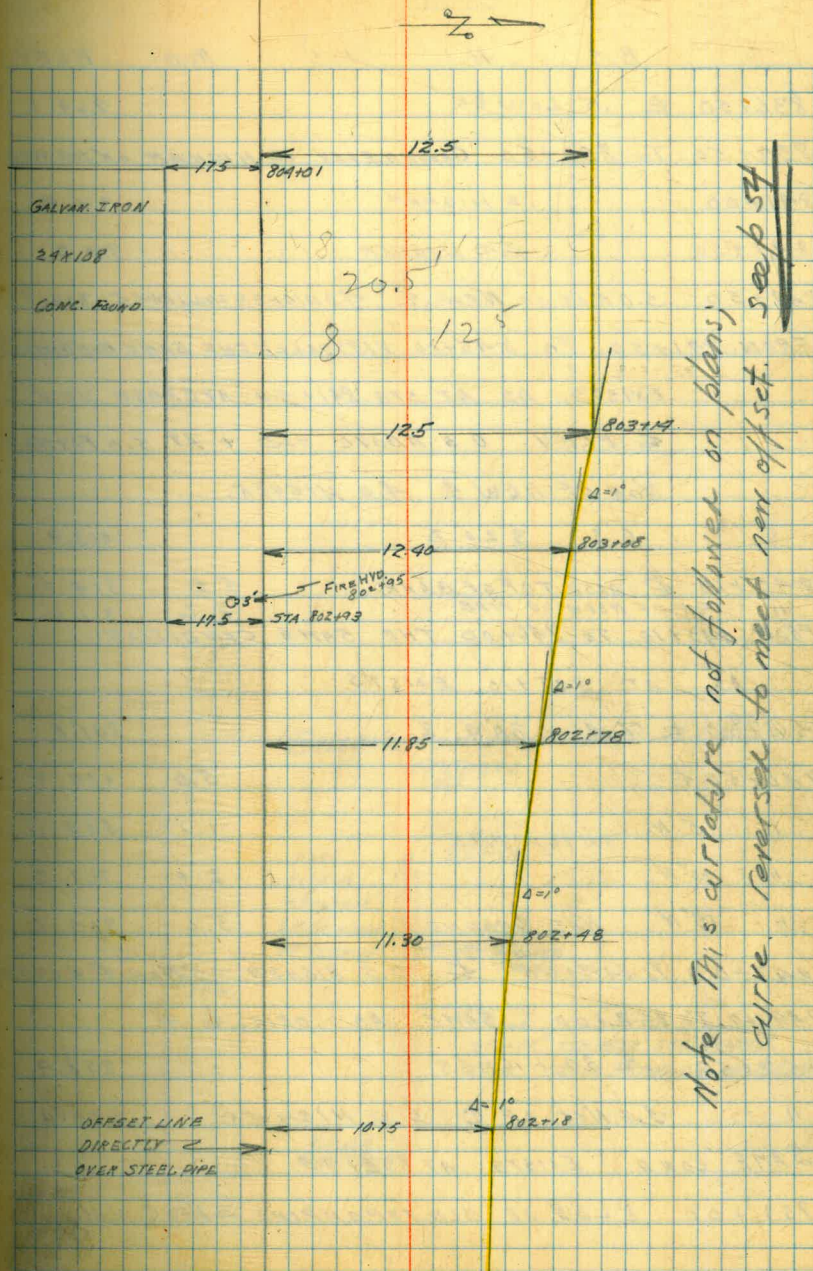 N
12.5
17.5 804+01
GALVAN. IRON
24X108
CONC. FOUND.
8
20.5'
8 12⁵
12.5 803+14
Δ=1°
12.40 803+08
FIRE HYD.
802+95
3'
17.5 STA. 802+93
Δ=1°
11.85 802+78
Δ=1°
11.30 802+48
Δ=1°
10.75 802+18
OFFSET LINE
DIRECTLY
OVER STEEL PIPE
Note. This curvature not followed on plans;
curve reversed to meet new offset. see p 54